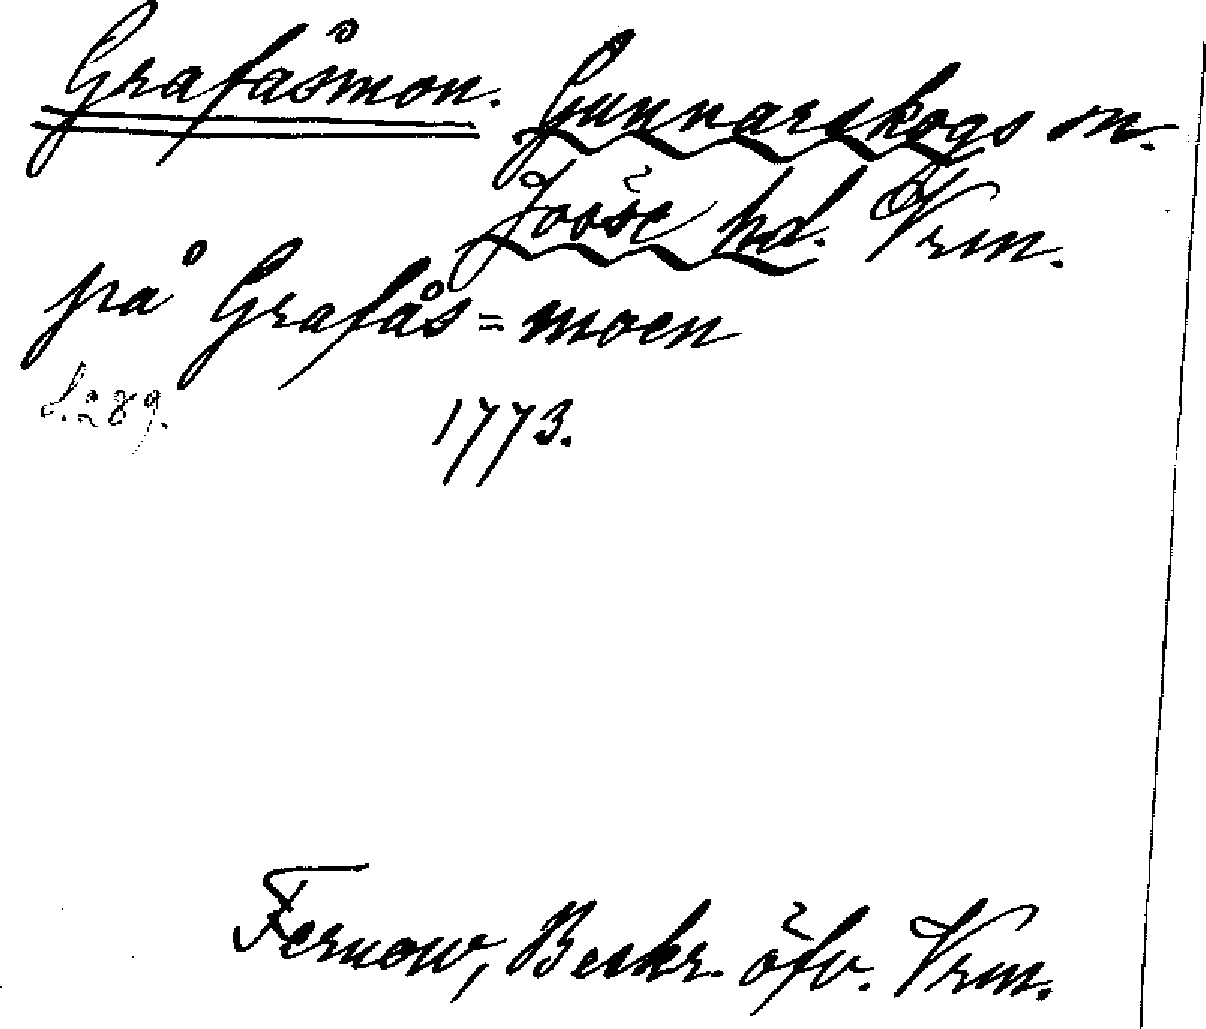 Grafåsmon. Gunnarskogs sn.
Jösse hd. Vrm.
på Grafås=moen
s. 289.
1773.
Fernow, Beskr. öfv. Vrm.